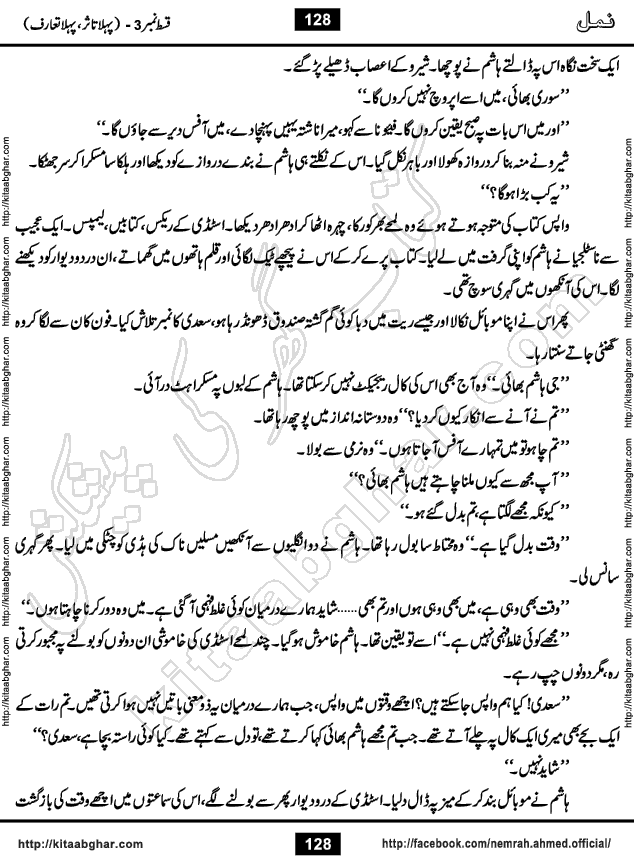 نمل 128 قسط نمبر 3 - (پہلا تاثر، پہلا تعارف)
ایک سخت نگاہ اس پہ ڈالتے ہاشم نے پوچھا۔ شیرو کے اعصاب ڈھیلے پڑ گئے۔
’’سوری بھائی، میں اسے اپروچ نہیں کروں گا۔‘‘
’’اور میں اس بات پہ صبح یقین کروں گا۔ فیئونا سے کہو، میرا ناشتہ یہیں پہنچا دے، میں آفس دیر سے جاؤں گا۔‘‘
شیرو نے منہ بنا کر دروازہ کھولا اور باہر نکل گیا۔ اس کے نکلتے ہی ہاشم نے بندے دروازے کو دیکھا اور ہلکا سا مسکرا کر سر جھٹکا۔
’’یہ کب بڑا ہوگا؟‘‘
واپس کتاب کی متوجہ ہوتے ہوئے وہ لمحے بھر کو رکا، چہرہ اٹھا کر ادھر ادھر دیکھا۔ اسٹڈی کے ریکس، کتابیں، لیمپس۔ ایک عجیب
سے ناسٹلجیا نے ہاشم کو اپنی گرفت میں لے لیا۔ کتاب پرے کر کے اس نے پیچھے ٹیک لگائی اور قلم ہاتھوں میں گھماتے، ان در و دیوار کو دیکھنے
لگا۔ اس کی آنکھوں میں گہری سوچ تھی۔
پھر اس نے اپنا موبائل نکالا اور جیسے ریت میں دبا کوئی گم گشتہ صندوق ڈھونڈ رہا ہو، سعدی کا نمبر تلاش کیا۔ فون کان سے لگا کر وہ
گھنٹی جاتے سنتا رہا۔
’’جی ہاشم بھائی۔‘‘ وہ آج بھی اس کی کال ریجیکٹ نہیں کر سکتا تھا۔ ہاشم کے لبوں پہ مسکراہٹ در آئی۔
’’تم نے آنے سے انکار کیوں کر دیا؟‘‘ وہ دوستانہ انداز میں پوچھ رہا تھا۔
’’تم چاہو تو میں تمہارے آفس آ جاتا ہوں۔‘‘ وہ نرمی سے بولا۔
’’آپ مجھ سے کیوں ملنا چاہتے ہیں ہاشم بھائی؟‘‘
’’کیونکہ مجھے لگتا ہے، تم بدل گئے ہو۔‘‘
’’وقت بدل گیا ہے۔‘‘ وہ محتاط سا بول رہا تھا۔ ہاشم نے دو انگلیوں سے آنکھیں مسلیں ناک کی ہڈی کو چٹکی میں لیا۔ پھر گہری
سانس لی۔
’’وقت بھی وہی ہے، میں بھی وہی ہوں اور تم بھی...... شاید ہمارے درمیان کوئی غلط فہمی آ گئی ہے۔ میں وہ دور کرنا چاہتا ہوں۔‘‘
’’مجھے کوئی غلط فہمی نہیں ہے۔‘‘ اسے تو یقین تھا۔ ہاشم خاموش ہو گیا۔ چند لمحے اسٹڈی کی خاموشی ان دونوں کو بولنے پہ مجبور کرتی
رہ، مگر دونوں چپ رہے۔
’’سعدی! کیا ہم واپس جا سکتے ہیں؟ اچھے وقتوں میں واپس، جب ہمارے درمیان یہ ذو معنی باتیں نہیں ہوا کرتی تھیں۔ تم رات کے
ایک بجے بھی میری ایک کال پہ چلے آتے تھے۔ جب تم مجھے ہاشم بھائی کہا کرتے تھے، تو دل سے کہتے تھے۔ کیا کوئی راستہ بچا ہے، سعدی؟‘‘
’’شاید نہیں۔‘‘
ہاشم نے موبائل بند کر کے میز پہ ڈال دلیا۔ اسٹڈی کے در و دیوار پھر سے بولنے لگے، اس کی سماعتوں میں اچھے وقت کی بازگشت
http://kitaabghar.com 128 http://facebook.com/nemrah.ahmed.official/
http://kitaabghar.com http://kitaabghar.com http://kitaabghar.com http://kitaabghar.com http://kitaabghar.com http://kitaabghar.com
http://kitaabghar.com http://kitaabghar.com http://kitaabghar.com http://kitaabghar.com http://kitaabghar.com http://kitaabghar.com
کتاب گھر کی پیشکش
kitaabghar.com